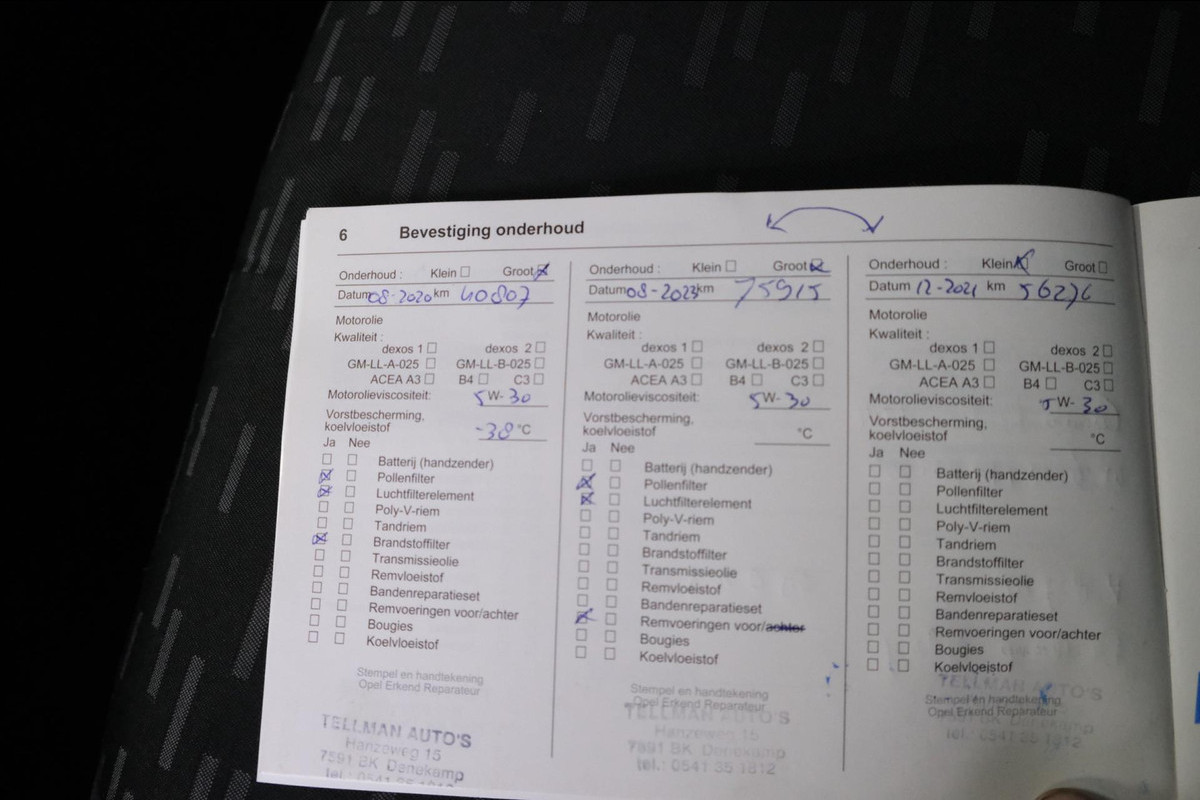 6 Bevestiging onderhoud
Onderhoud : Klein Groot
Datum 08-2020 km 40807
Motorolie
Kwaliteit :
dexos 1 dexos 2
GM-LL-A-025 GM-LL-B-025
ACEA A3 B4 C3
Motorolieviscositeit: 5W-30
Vorstbescherming,
koelvloeistof -38 °C
Ja Nee
Batterij (handzender)
Pollenfilter
Luchtfilterelement
Poly-V-riem
Tandriem
Brandstoffilter
Transmissieolie
Remvloeistof
Bandenreparatieset
Remvoeringen voor/achter
Bougies
Koelvloeistof
Stempel en handtekening
Opel Erkend Reparateur
TELLMAN AUTO'S
Hanzeweg 15
7591 BK Denekamp
tel.: 0541 35 1812
Onderhoud : Klein Groot
Datum 08-2023 km 75915
Motorolie
Kwaliteit :
dexos 1 dexos 2
GM-LL-A-025 GM-LL-B-025
ACEA A3 B4 C3
Motorolieviscositeit: 5W-30
Vorstbescherming,
koelvloeistof °C
Ja Nee
Batterij (handzender)
Pollenfilter
Luchtfilterelement
Poly-V-riem
Tandriem
Brandstoffilter
Transmissieolie
Remvloeistof
Bandenreparatieset
Remvoeringen voor/achter
Bougies
Koelvloeistof
Stempel en handtekening
Opel Erkend Reparateur
TELLMAN AUTO'S
Hanzeweg 15
7591 BK Denekamp
tel.: 0541 35 1812
Onderhoud : Klein Groot
Datum 12-2021 km 56276
Motorolie
Kwaliteit :
dexos 1 dexos 2
GM-LL-A-025 GM-LL-B-025
ACEA A3 B4 C3
Motorolieviscositeit: 5W-30
Vorstbescherming,
koelvloeistof °C
Ja Nee
Batterij (handzender)
Pollenfilter
Luchtfilterelement
Poly-V-riem
Tandriem
Brandstoffilter
Transmissieolie
Remvloeistof
Bandenreparatieset
Remvoeringen voor/achter
Bougies
Koelvloeistof
TELLMAN AUTO'S
Stempel en handtekening
Opel Erkend Reparateur
BK Denekamp
tel.: 0541 35 1812